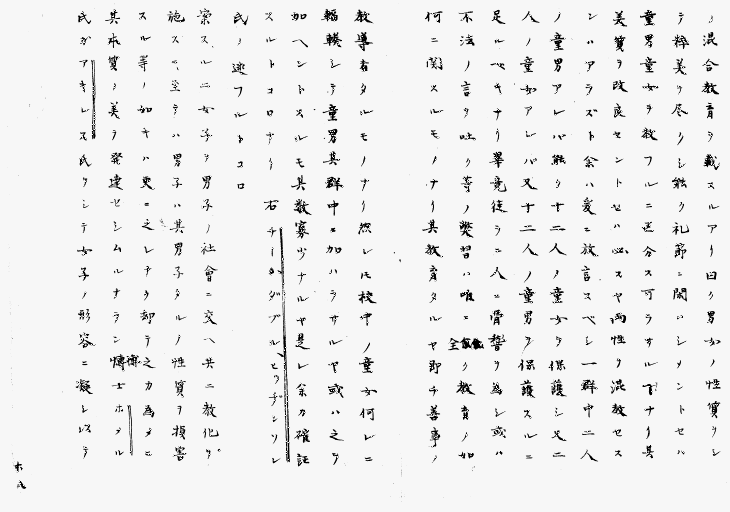 ノ混合教育ヲ載スルアリ曰ク男女ノ性質ヲシ
テ粋美ヲ尽クシ能ク礼節ニ閑ハシメントセハ
童男童女ヲ教フルニ区分ス可ラサル丁ナリ其
美質ヲ改良セントセハ必スヤ両性ヲ混教セス
ンハアラズト余ハ爰ニ放言スベシ一群中二人
ノ童男アレバ能ク十二人ノ童女ヲ保護シ又二
人ノ童女アレバ又十二人ノ童男ヲ保護スルニ
足ル可キナリ畢竟徒ラニ人ニ骨ヲ為シ或ハ
不法ノ言ヲ吐ク等ノ弊習ハ唯ニ教育ノ如
何ニ関スルモノナリ其教育タルヤ即チ善事ノ
教導者タルモノナリ然レ圧校中ノ童女何レニ
輻輳シテ童男其群中ニ加ハラサルヤ或ハ之ヲ
加ヘントスルモ其数寡少ナルヤ是レ余カ確証
スルトコロナリ 右チーカダブルビラヂンソレ
氏ノ述フルトコロ
案スルニ女子ヲ男子ノ社會ニ交ヘ共ニ教化ヲ
施スニ至テハ男子ハ其男子タルノ性質ヲ損害
スル等ノ如キハ更ニ之レナク却テ之カ為メニ
其本質ノ美ヲ発達セシムルナラン博士ホメル
氏ガアキレス氏ヲシテ女子ノ形容ニ凝シ以テ